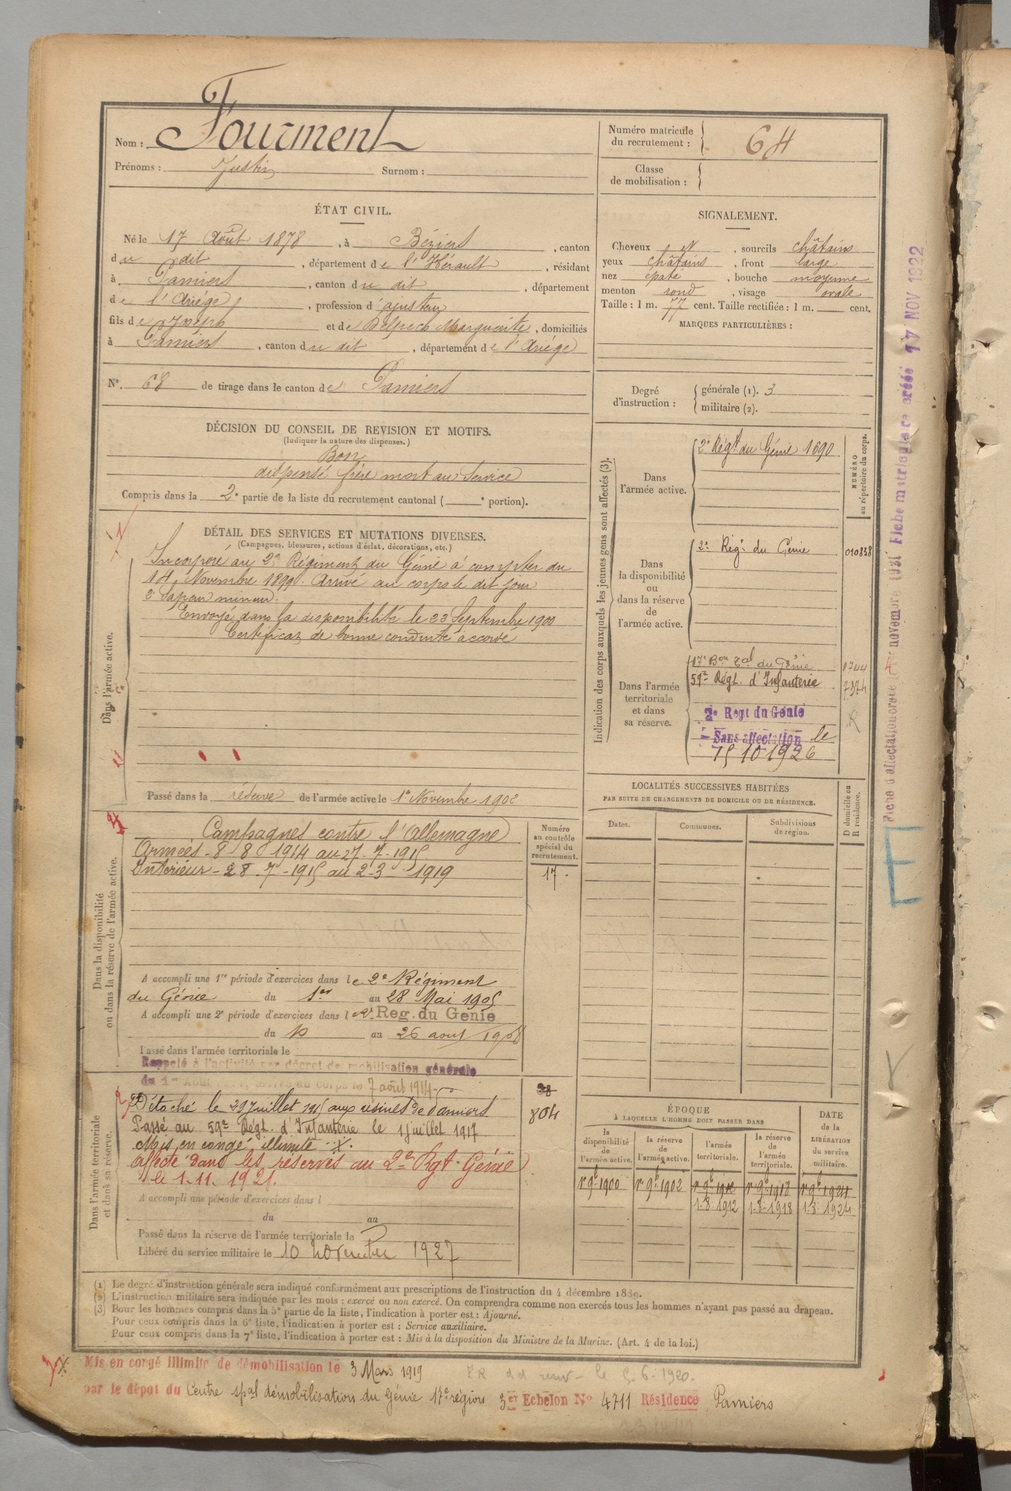 Nom : Fourment
Prénoms : Justin Surnom :
Numéro matricule
du recrutement : 64
Classe
de mobilisation :
ÉTAT CIVIL.
Né le 17 Août 1878, à Béziers, canton
du dit, département de l'Hérault, résidant
à Pamiers, canton du dit, département
de l'Ariège, profession d'ajusteur
fils de Joseph et de Belpech Marguerite, domiciliés
à Pamiers, canton du dit, département de l'Ariège
N° 68 de tirage dans le canton de Pamiers
SIGNALEMENT.
Cheveux et, sourcils châtains
yeux châtains, front large
nez épaté, bouche moyenne
menton rond, visage ovale
Taille : 1 m. 77 cent. Taille rectifiée : 1 m. cent.
MARQUES PARTICULIÈRES :
Degré
d'instruction :
générale (1). 3
militaire (2).
DÉCISION DU CONSEIL DE REVISION ET MOTIFS.
(Indiquer la nature des dispenses.)
Bon
dispensé frère mort au service
Compris dans la 2e partie de la liste du recrutement cantonal ( e portion).
DÉTAIL DES SERVICES ET MUTATIONS DIVERSES.
(Campagnes, blessures, actions d'éclat, décorations, etc.)
Dans l'armée active.
Incorporé au 2e Régiment du Génie à compter du
14 Novembre 1899. Arrivé au corps le dit jour
2e sapeur mineur.
Envoyé dans la disponibilité le 23 Septembre 1900
Certificat de bonne conduite accordé
Passé dans la réserve de l'armée active le 1er Novembre 1902
Indication des corps auxquels les jeunes gens sont affectés (3).
NUMÉRO
au répertoire du corps.
Dans
l'armée active.
2e Régt du Génie 1690
Dans
la disponibilité
ou
dans la réserve
de
l'armée active.
2e Régt du Génie 010838
Dans l'armée
territoriale
et dans
sa réserve.
17e Bon Tal du Génie 1744
59e Régt. d'Infanterie
2e Regt du Génie
Sans affectation le
15 10 1926
Dans la disponibilité
ou dans la réserve de l'armée active.
Campagnes contre l'Allemagne
Armées - 8 8 1914 au 27-7-1915
Intérieur - 28-7-1915 au 2-3 1919
Numéro
au contrôle
spécial du
recrutement.
17.
A accompli une 1re période d'exercices dans le 2e Régiment
du Génie du 1er au 28 Mai 1905
A accompli une 2e période d'exercices dans le 2e Reg. du Génie
du 10 au 26 aout 1908
Passé dans l'armée territoriale le
Rappelé à l'activité par décret de mobilisation générale
du 1er Août 1914, arrivé au corps le 7 août 1914
LOCALITÉS SUCCESSIVES HABITÉES
PAR SUITE DE CHANGEMENTS DE DOMICILE OU DE RÉSIDENCE.
Dates.
Communes.
Subdivisions
de région.
D domicile ou
R résidence.
Dans l'armée territoriale
et dans sa réserve.
Détaché le 29 juillet 1915 aux usines de Pamiers
Passé au 59e Régt. d'Infanterie le 1 juillet 1917
Mis en congé illimité X.
affecté dans les réserves au 2e Rgt-Génie
le 1.11.1921.
804
A accompli une période d'exercices dans l
du au
Passé dans la réserve de l'armée territoriale le
Libéré du service militaire le 10 novembre 1927
ÉPOQUE
À LAQUELLE L'HOMME DOIT PASSER DANS
la
disponibilité
de
l'armée active.
la
réserve
de
l'armée active.
l'armée
territoriale.
la
réserve
de
l'armée
territoriale.
DATE
de la
LIBÉRATION
du
service
militaire.
1er 9bre 1900 1er 9bre 1902 1er 9bre 1912 1er 9bre 1918 1er 9bre 1924
1-8-1912 1-8-1918 1-8-1924
(1) Le degré d'instruction générale sera indiqué conformément aux prescriptions de l'instruction du 4 décembre 1889.
(2) L'instruction militaire sera indiquée par les mots : exercé ou non exercé. On comprendra comme non exercés tous les hommes n'ayant pas passé au drapeau.
(3) Pour les hommes compris dans la 5e partie de la liste, l'indication à porter est : Ajourné.
Pour ceux compris dans la 6e liste, l'indication à porter est : Service auxiliaire.
Pour ceux compris dans la 7e liste, l'indication à porter est : Mis à la disposition du Ministre de la Marine. (Art. 4 de la loi.)
X. Mis en congé illimité de démobilisation le 3 Mars 1919
par le dépôt du Centre spal démobilisation du Génie 17e région 3er Echelon No 4711 Résidence Pamiers
Fiche d'affectation créée 4 novembre 1921 Fiche matriculaire créée 17 NOV 1922